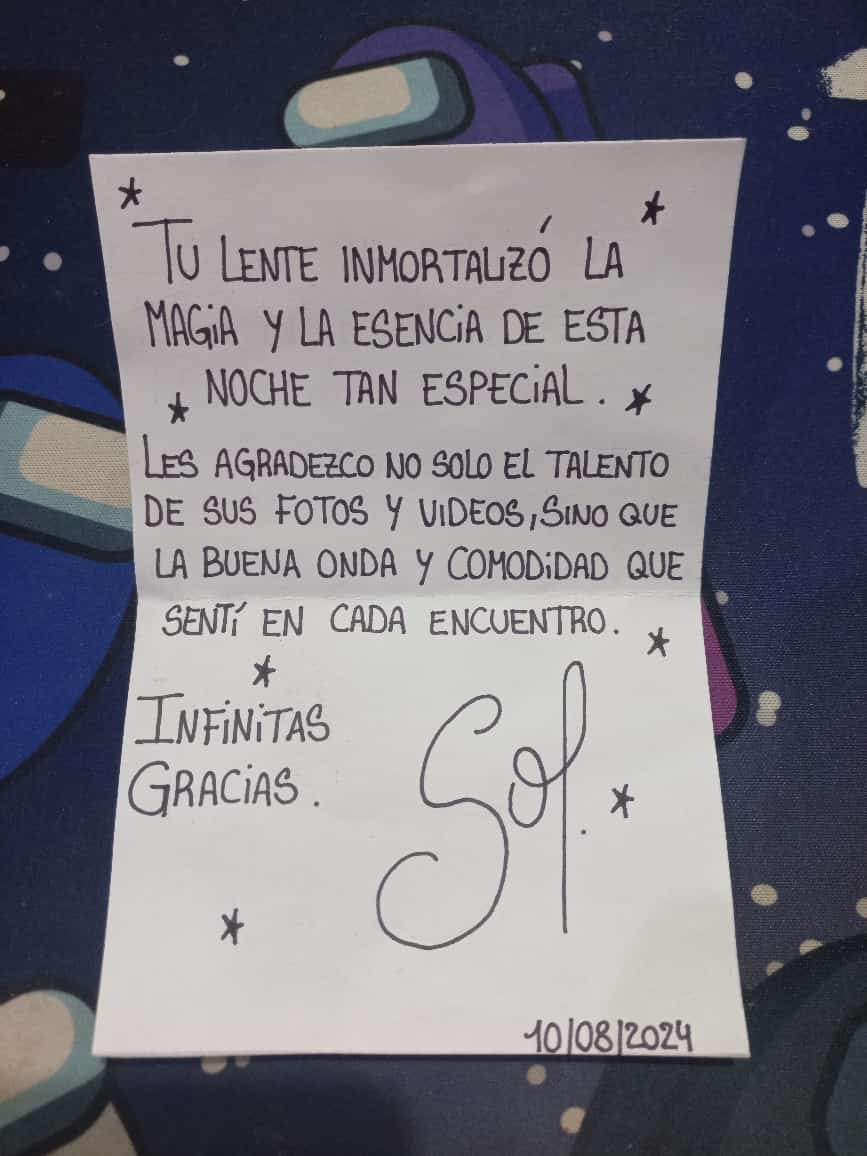 TU LENTE INMORTALIZÓ LA
MAGIA Y LA ESENCIA DE ESTA
NOCHE TAN ESPECIAL.
LES AGRADEZCO NO SOLO EL TALENTO
DE SUS FOTOS Y VIDEOS, SINO QUE
LA BUENA ONDA Y COMODIDAD QUE
SENTÍ EN CADA ENCUENTRO.
INFINITAS
GRACIAS.
Sol.
10/08/2024